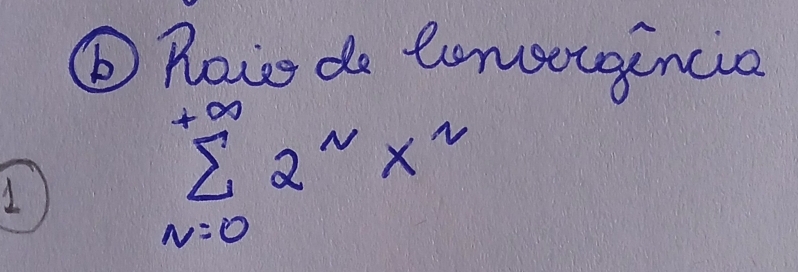 ⓑ Raio de Convergência
+∞
① Σ 2^N x^N
N=0